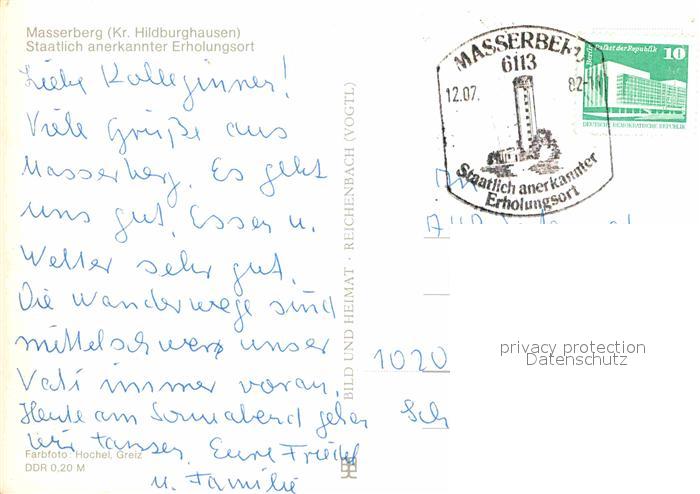 Masserberg (Kr. Hildburghausen)
Staatlich anerkannter Erholungsort
Liebe Kolleginnen!
Viele Grüße aus
Masserberg. Es geht
uns gut. Essen u.
Wetter sehr gut.
Die Wanderwege sind
mittelschwer unser
Vati immer voran.
Heute am Sonnabend gehen
wir tanzen. Eure Friedel
u. Familie
Farbfoto: Hochel, Greiz
DDR 0,20 M
BILD UND HEIMAT · REICHENBACH (VOGTL)
MASSERBERG
6113
12.07. 82-
Staatlich anerkannter
Erholungsort
Berlin Palast der Republik 10
DEUTSCHE DEMOKRATISCHE REPUBLIK
An
1020
privacy protection
Datenschutz
Sch